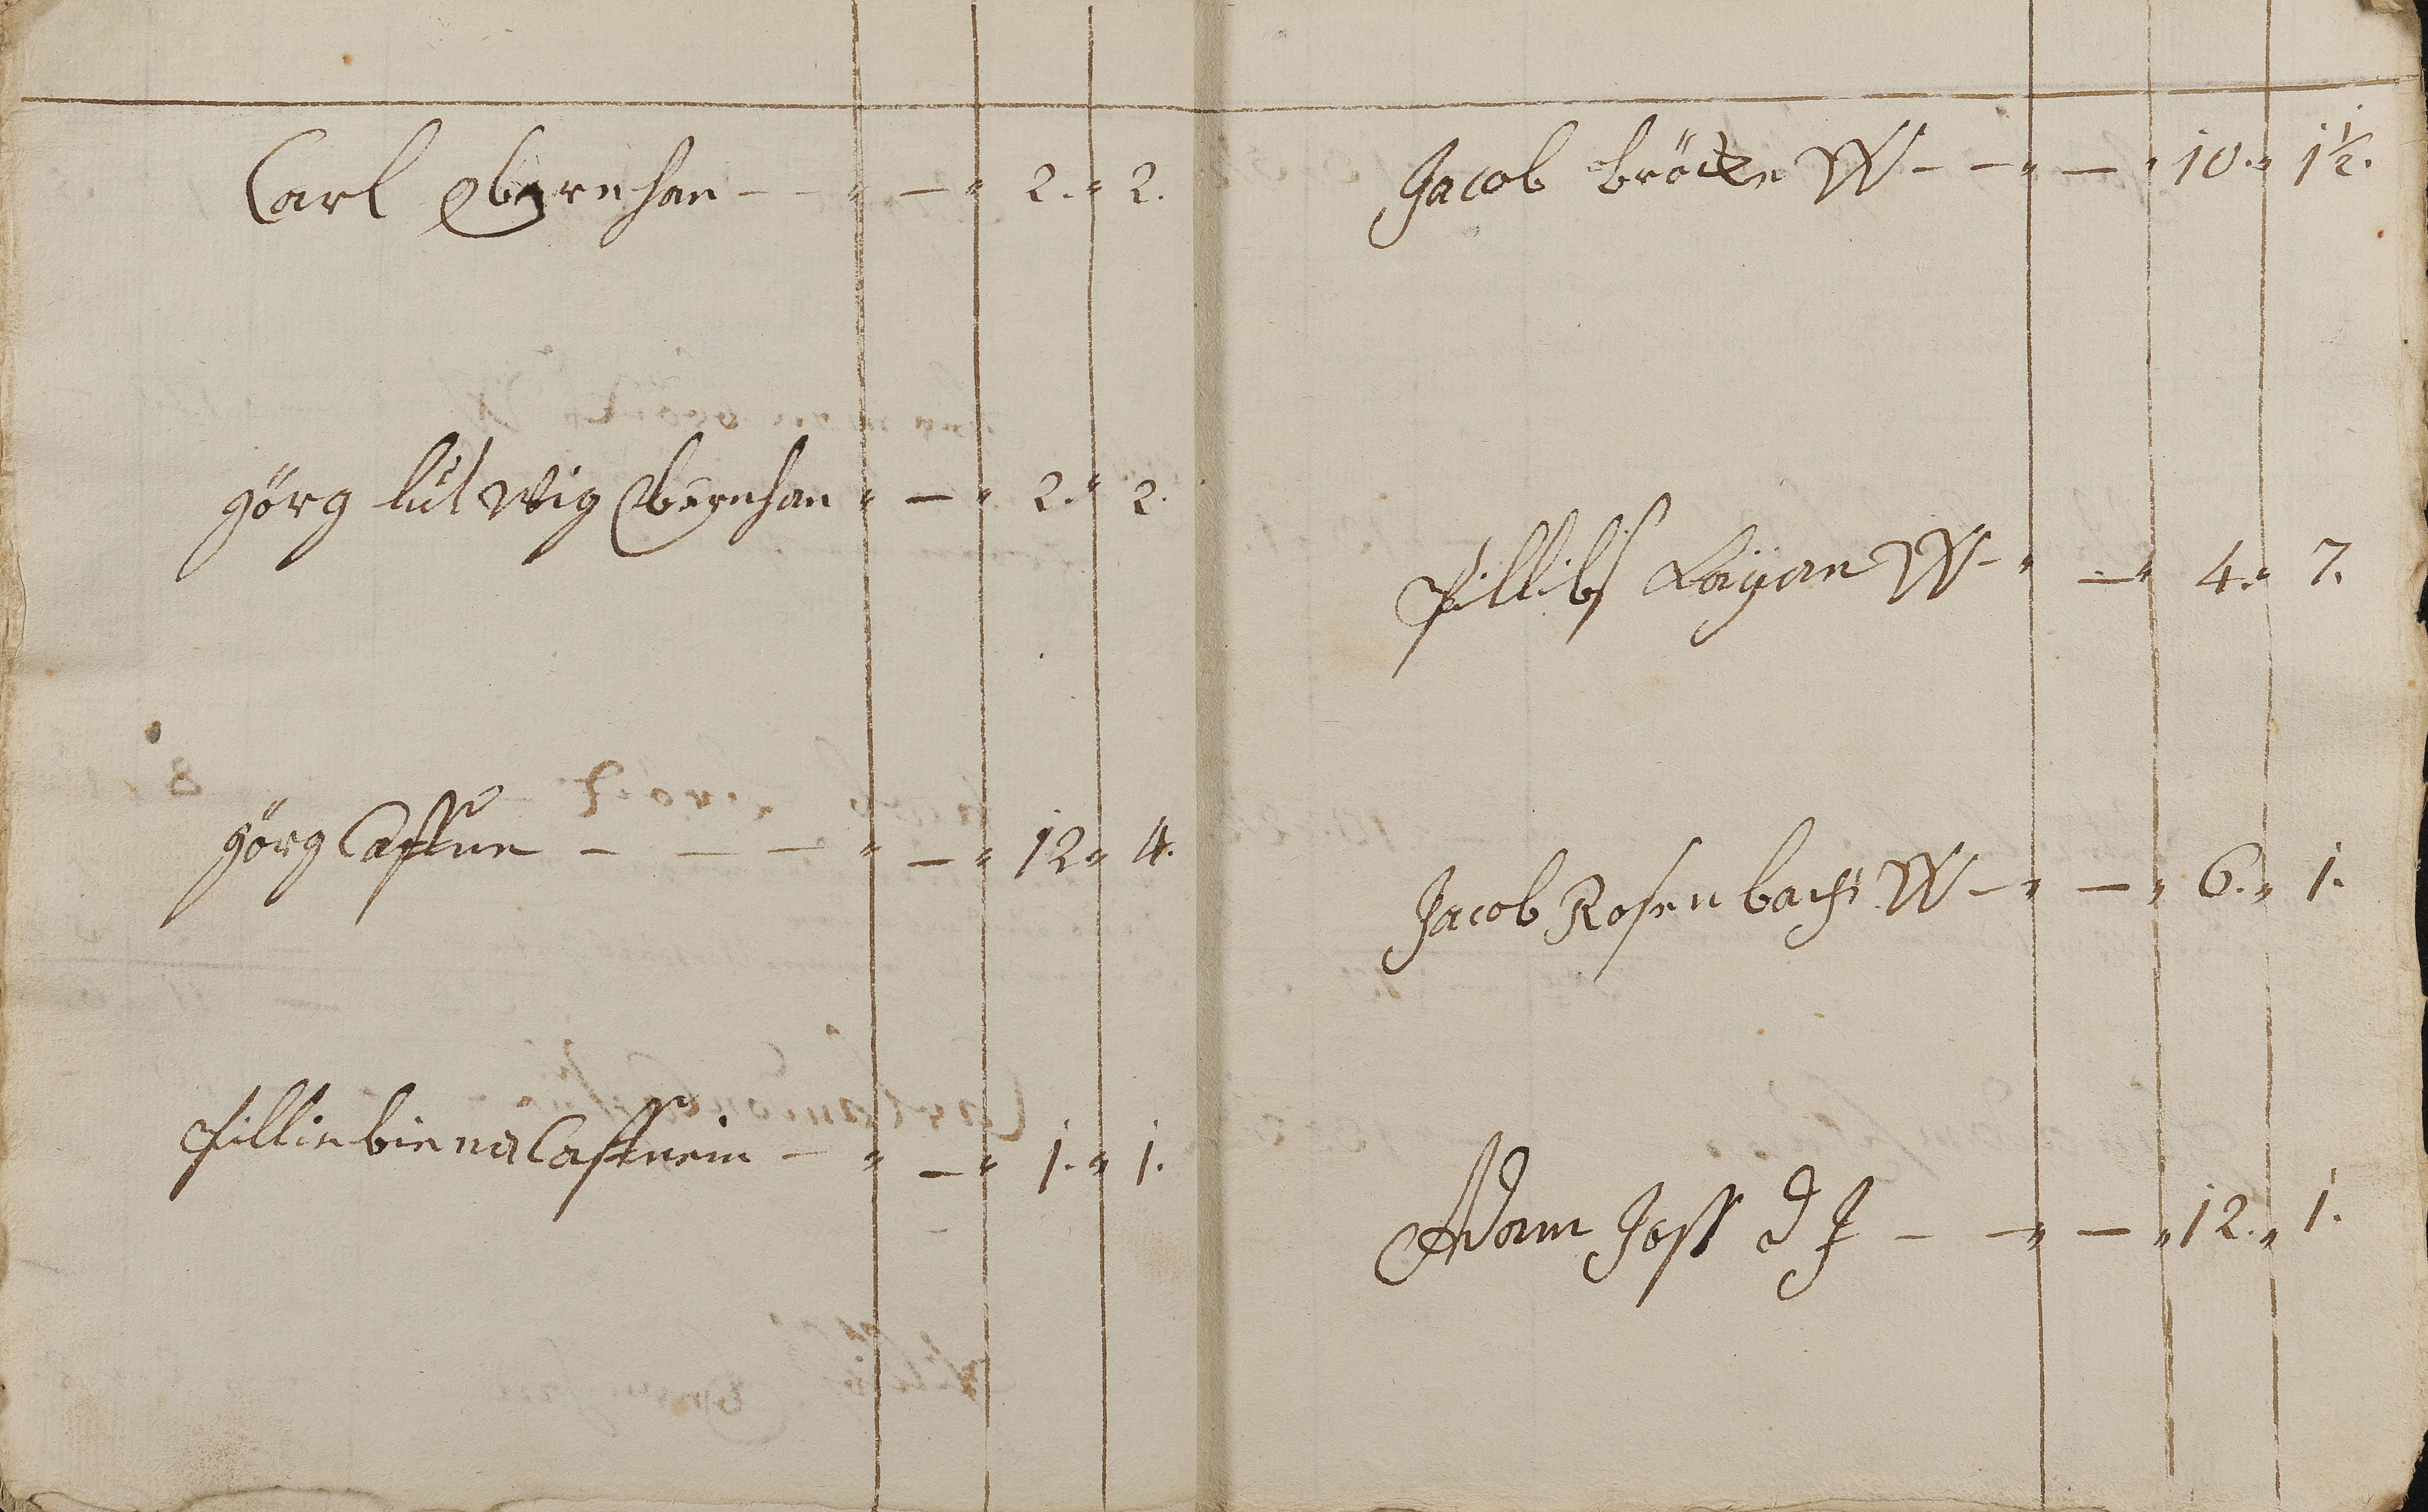 Carl Obernhan — — " — " 2. " 2.
görg lutwig Obernhan " — " 2. " 2.
görg Castun — — — " — " 12 " 4.
Fillinbiena Castnein — " — " 1. " 1.
Jacob bröcke W — — " — " 10. " 1½.
Fillibs Layan W — " — " 4. " 7.
Jacob Rosenbachs W — " — " 6. " 1.
Adam Jost d J — — " — " 12. " 1.